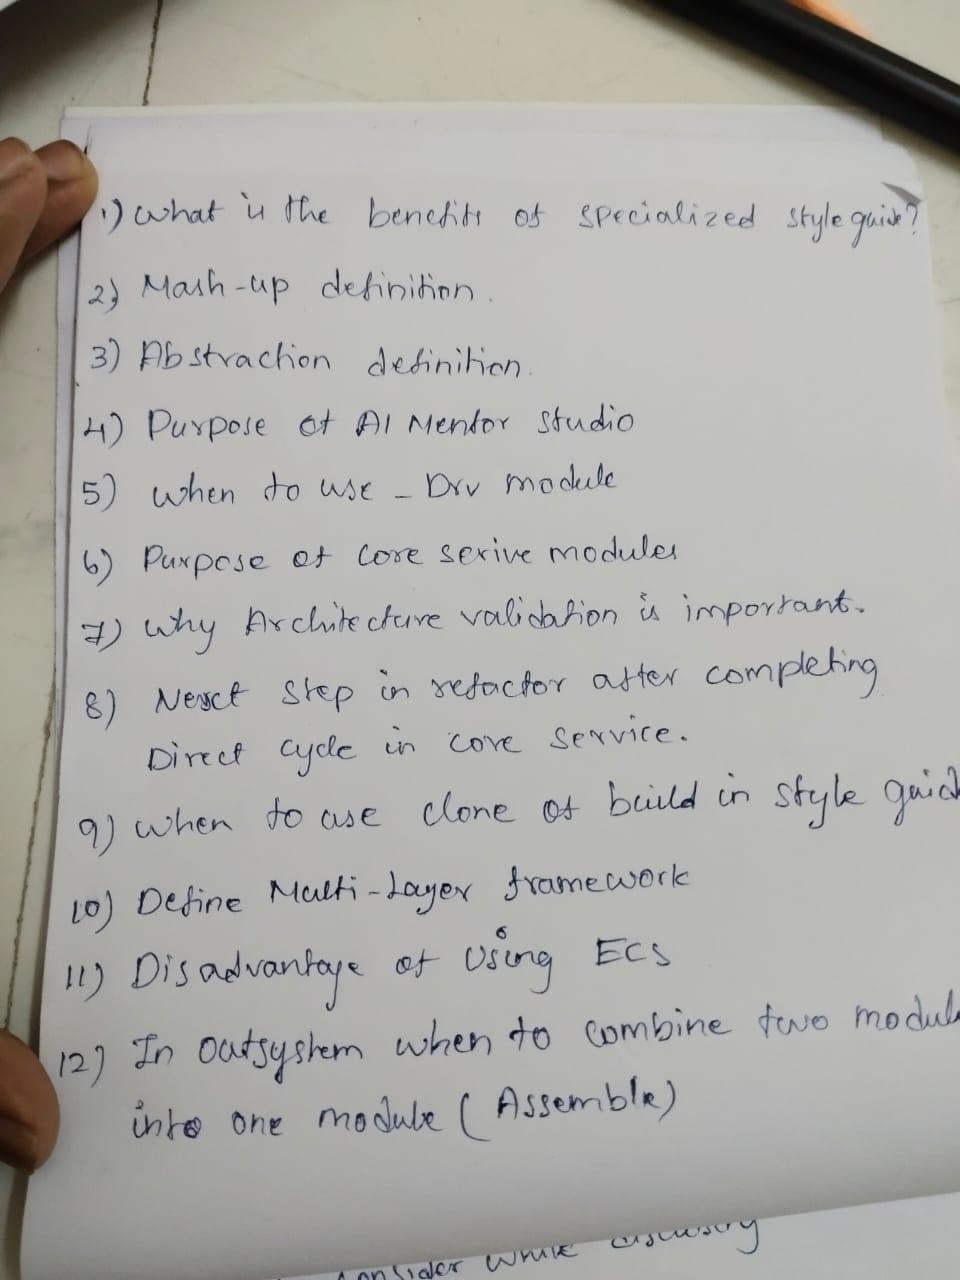 1) What is the benefits of specialized style guide?
2) Mash-up definition.
3) Abstraction definition.
4) Purpose of AI Mentor Studio
5) when to use - Drv module
6) Purpose of Core serive modules
7) Why Architecture validation is important.
8) Next step in refactor after completing
Direct cycle in core service.
9) When to use clone of build in style guid
10) Define Multi-Layer framework
11) Disadvantage of Using ECS
12) In Outsystem when to combine two modul
into one module (Assemble)
onsider while